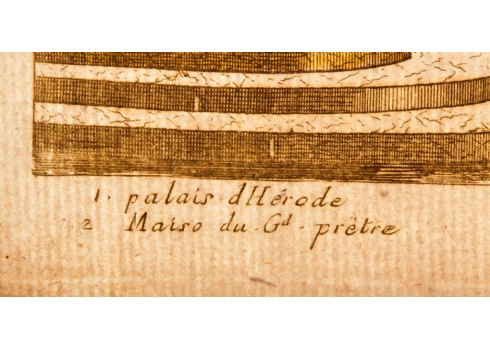 1. palais d'Hérode
2 Maiso du Gd. prëtre